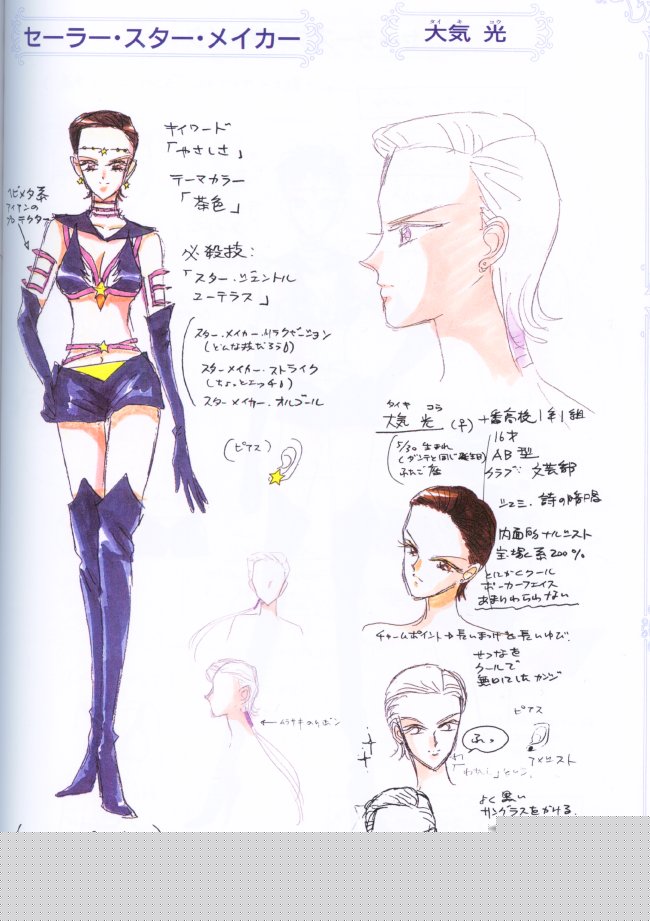 セーラー・スター・メイカー
タイキ コウ
大気 光
キイワード
「やさしさ」
テーマカラー
「茶色」
必殺技:
「スター・ジェントル
ユーテラス」
スター・メイカー・リラクゼーション
(どんな技だろう)
スター・メイカー・ストライク
(ちょっとエッチ)
スター・メイカー・オルゴール
(ピアス)
大気 光 (♀)
十番高校1年1組
5/30 生まれ
(ダンテと同じ誕生日)
ふたご座
16才
AB型
クラブ: 文芸部
シュミ. 詩の暗唱
内面的ナルシスト
宝塚系200%
とにかくクール
ポーカーフェイス
あまりわらわない
チャームポイント→長いまつげと長いゆび.
せつなを
クールで
無口にしたカンジ
ムラサキのリボン
ふっ
ピアス
アメジスト
よく黒い
サングラスをかける.